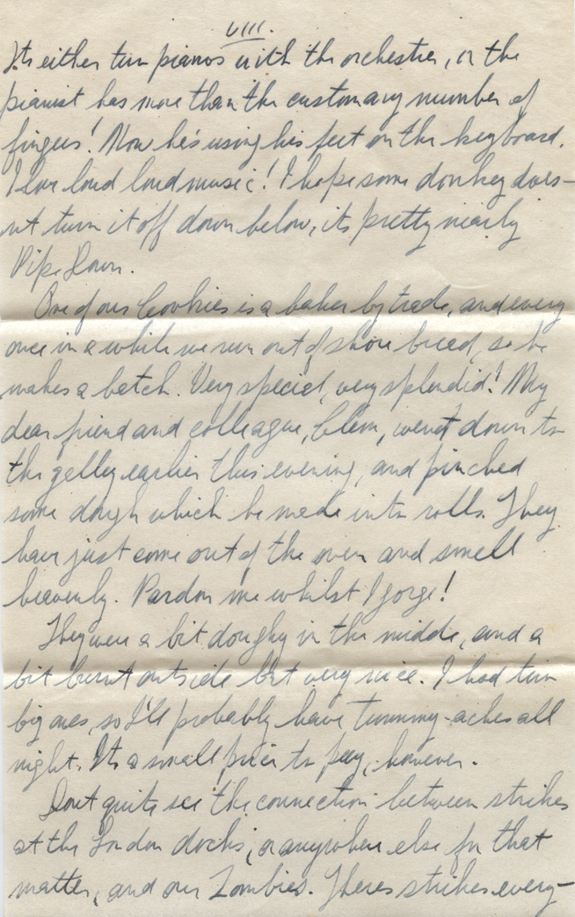 VIII.
Its either two pianos with the orchestra, or the
pianist has more than the customary number of
fingers! Now he's using his feet on the keyboard.
I love loud loud music! I hope some donkey does-
nt turn it off down below, its pretty nearly
Pipe Down.
One of our Cookies is a baker by trade, and every
once in a while we run out of shore bread, so he
makes a batch. Very special, very splendid! My
dear friend and colleague, Clem, went down to
the galley earlier this evening, and pinched
some dough which he made into rolls. They
have just come out of the oven and smell
heavenly. Pardon me whilst I gorge!
They were a bit doughy in the middle, and a
bit burnt outside but very nice. I had two
big ones, so I'll probably have tummy-aches all
night. Its a small price to pay, however.
Dont quite see the connection between strikes
at the London docks, or anywhere else for that
matter, and our Zombies. Theres strikes every-